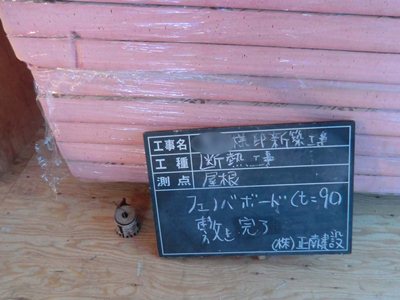 工事名 様邸新築工事
工種 断熱工事
測点 屋根
フェノバボード(t=90)
敷き完了
(株)正南建設